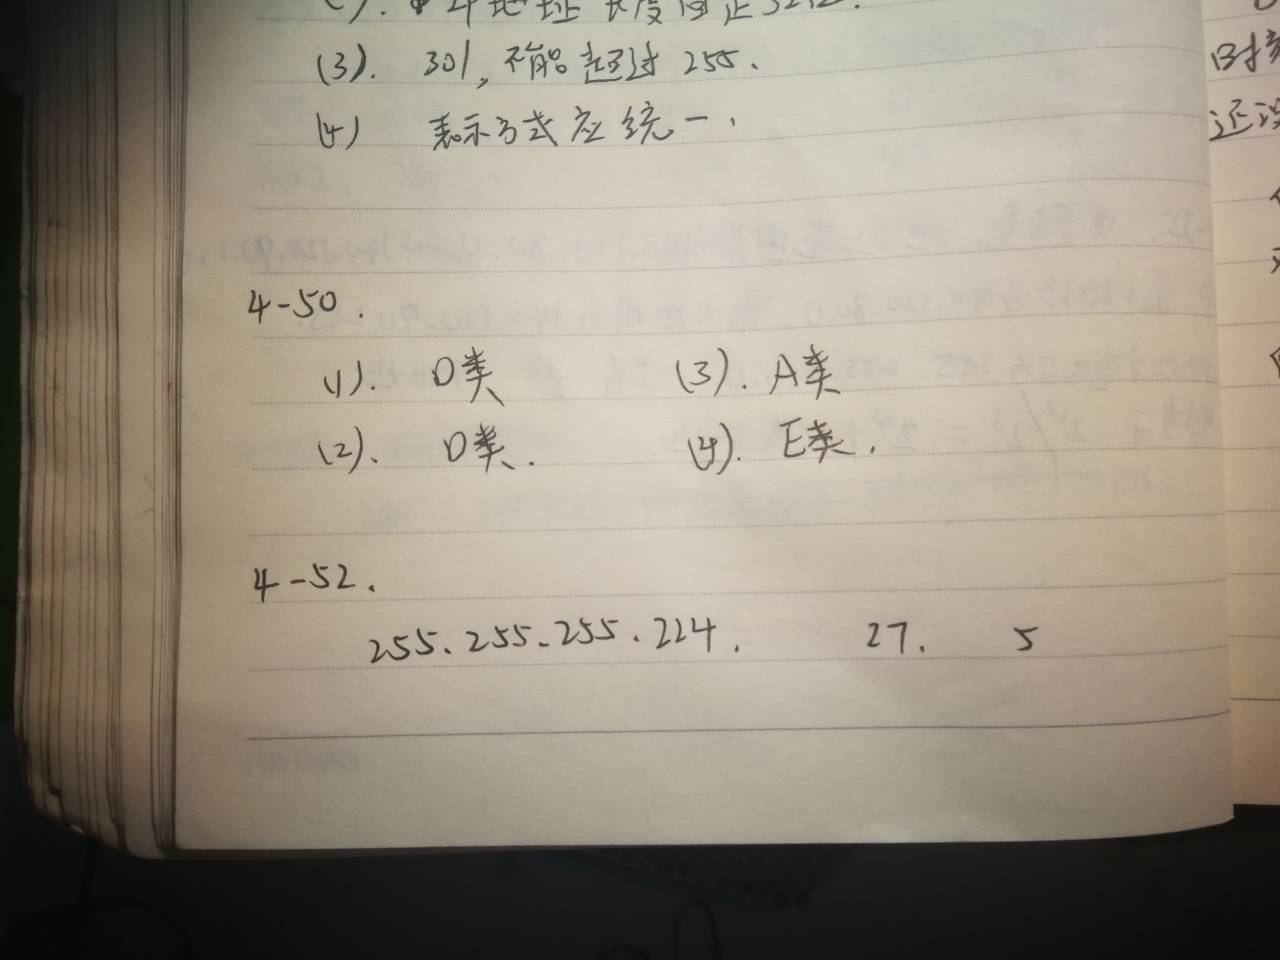 地址长度固定32位.
(3). 301, 不能超过 255.
(4) 表示方式应统一.
4-50.
(1). D类 (3). A类
(2). D类. (4). E类.
4-52.
255.255.255.224. 27. 5